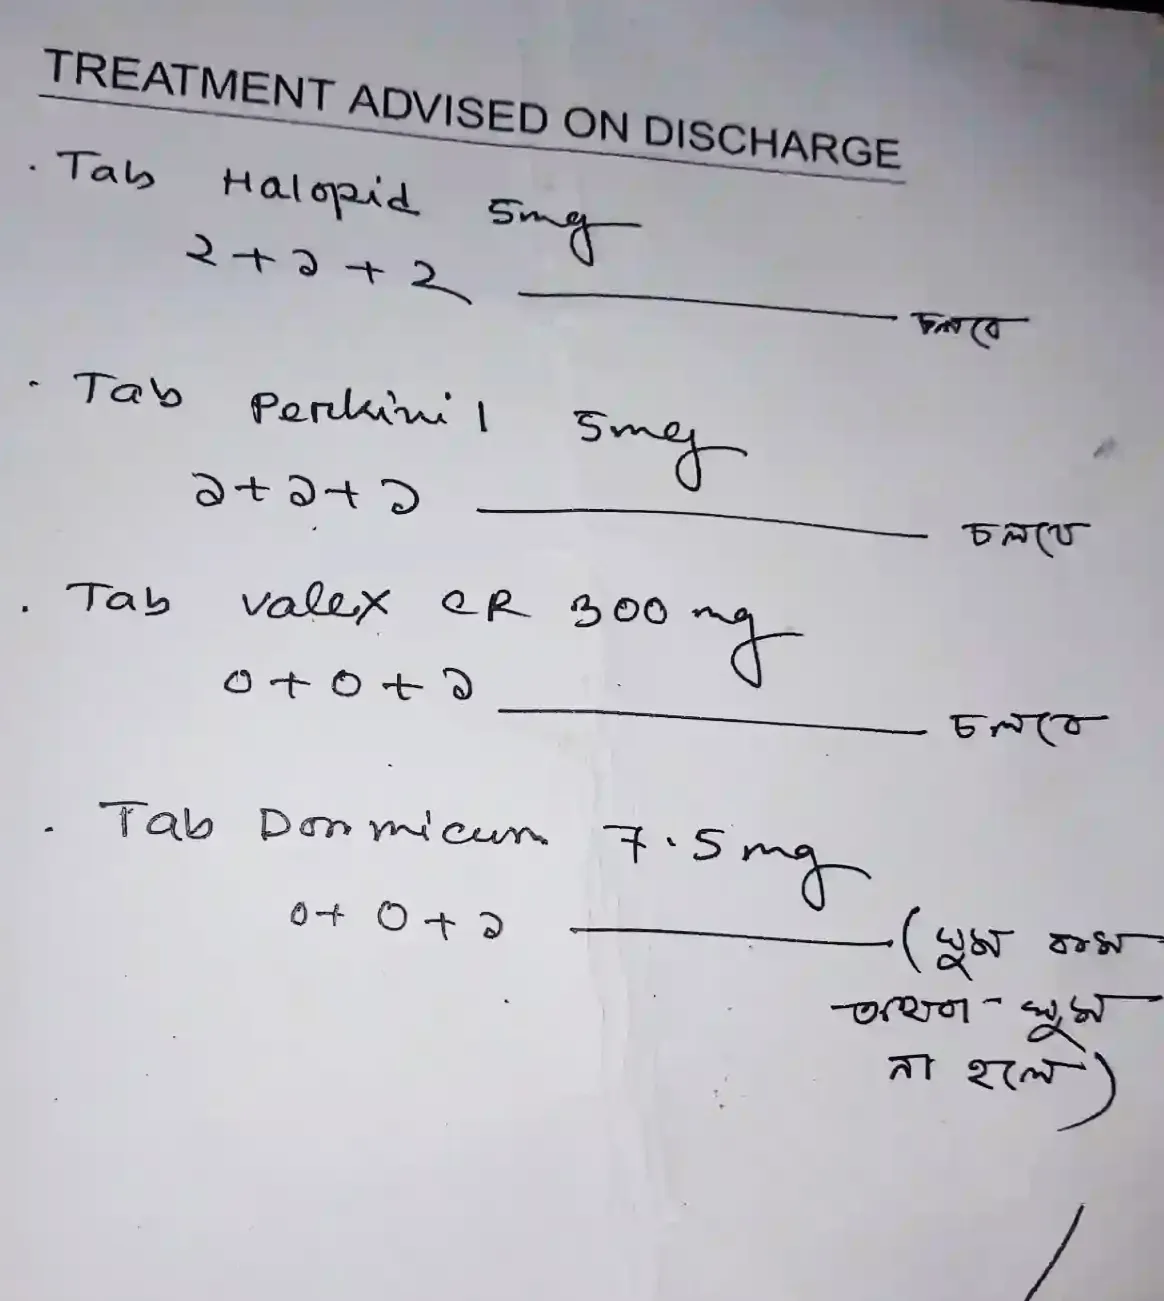 TREATMENT ADVISED ON DISCHARGE
. Tab Halopid 5mg
২+১+২ চলবে
. Tab Perkinil 5mg
১+১+১ চলবে
. Tab Valex CR 300 mg
০+০+১ চলবে
. Tab Dormicum 7.5mg
০+০+১ (ঘুম কম
অথবা - ঘুম
না হলে)